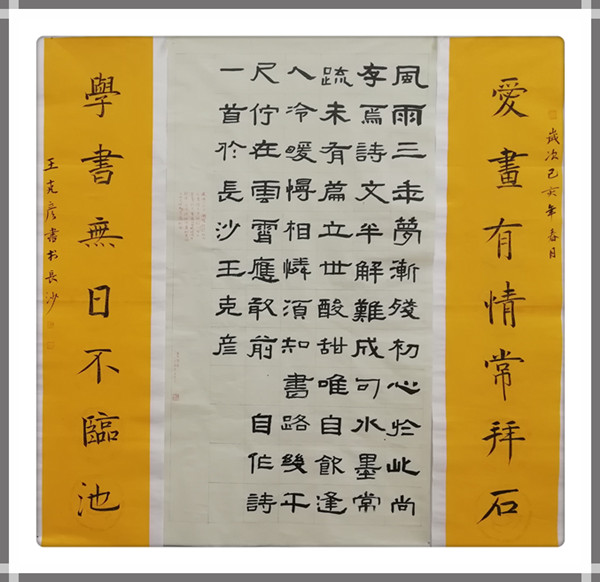 愛畫有情常拜石
歲次己亥年春月
風雨三年夢漸殘初心於此尚
存焉詩文半解難成句水墨常
疏未有篇立世酸甜唯自飲逢
人冷暖慢相憐須知書路幾千
尺佇在雲霄應敢前 自作詩
一首於長沙王克彦
學書無日不臨池
王克彦書於長沙